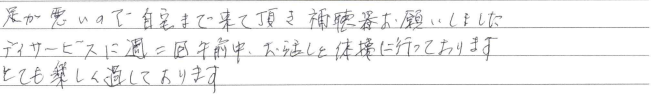 足が悪いので自宅まで来て頂き補聴器お願いしました
デイサービスに週二回午前中、お話しと体操に行っております
とても楽しく過しております